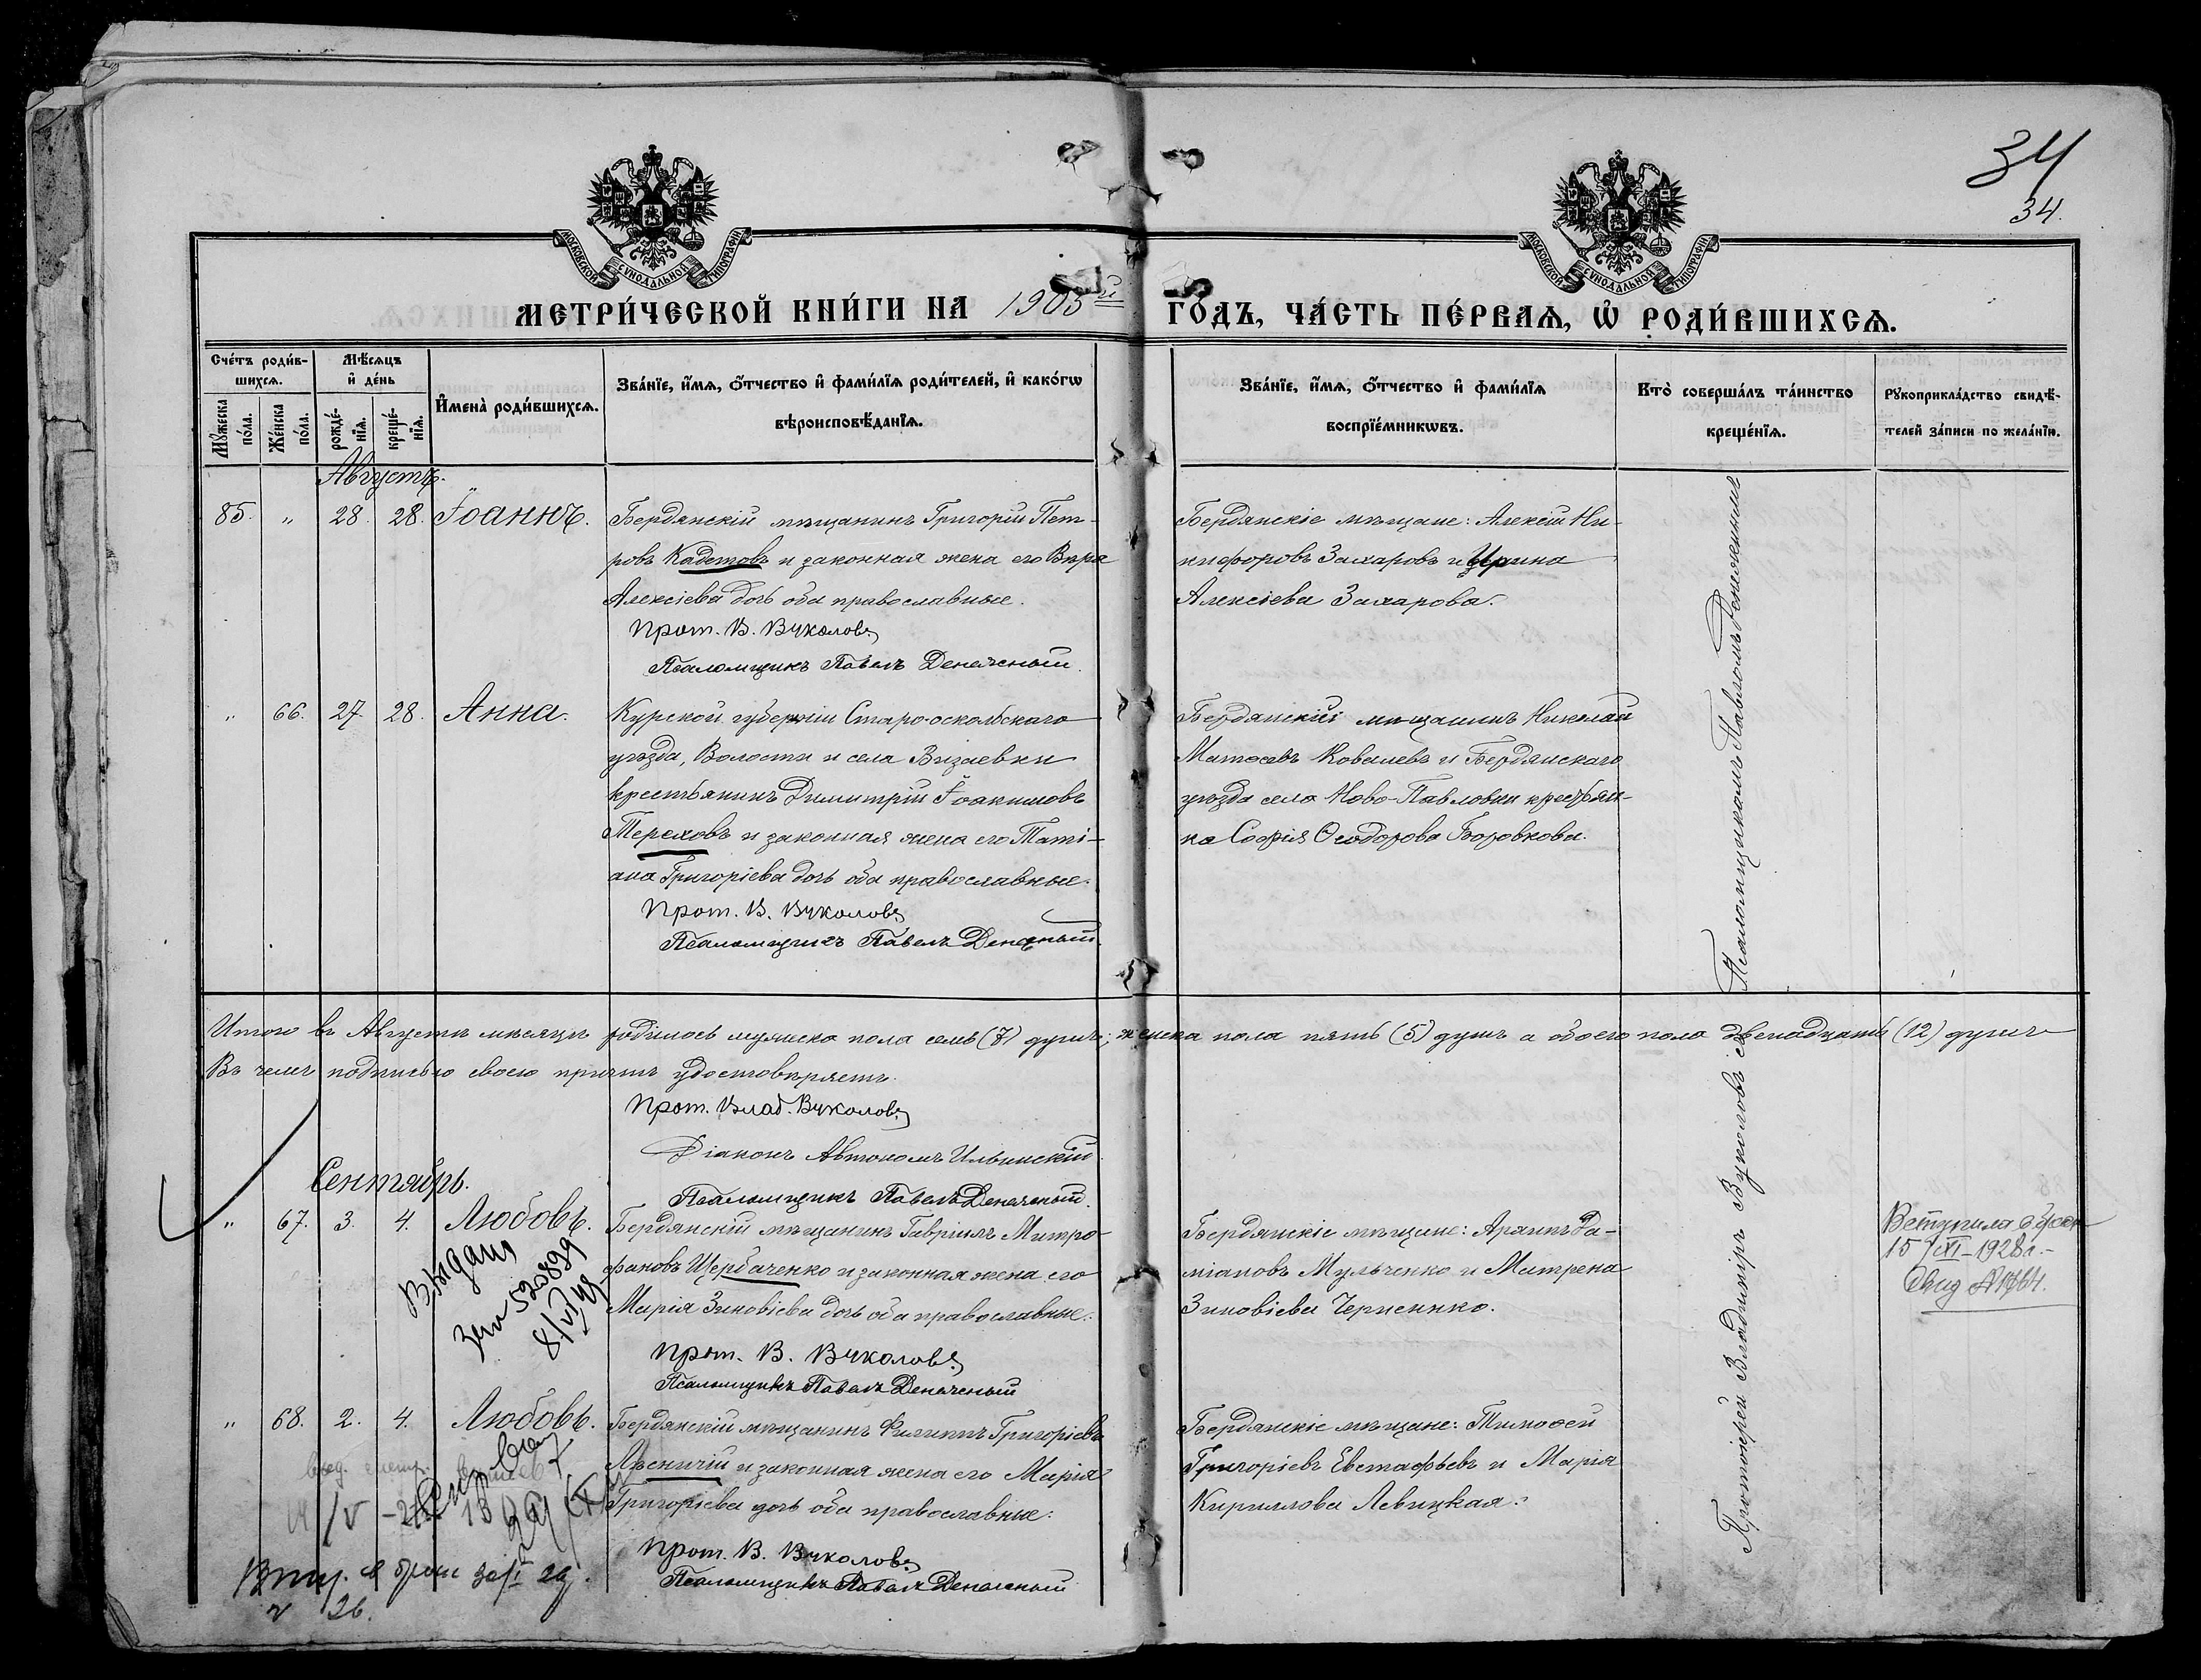 34
34.
МОСКОВСКОЙ СѴНОДАЛЬНОЙ ТИПОГРАФІИ
МОСКОВСКОЙ СѴНОДАЛЬНОЙ ТИПОГРАФІИ
МЕТРИ́ЧЕСКОЙ КНИ́ГИ НА 1905й ГО́ДЪ, ЧА́СТЬ ПЕ́РВАѦ, Ѽ РОДИ́ВШИХСѦ.
Сче́тъ роди́в-
шихсѧ.
Мѣ́сѧцъ
и҆ де́нь
Мꙋ́жеска по́ла.
Же́нска по́ла.
рожде́-
нїѧ.
креще́-
нїѧ.
И҆мена̀ роди́вшихсѧ.
Зва́нїе, и҆́мѧ, ѻ҆́тчество и҆ фами́лїѧ роди́телей, и҆ како́гѡ
вѣроисповѣ́данїѧ.
Зва́нїе, и҆́мѧ, ѻ҆́тчество и҆ фами́лїѧ
воспрїе́мникѡвъ.
Кто̀ соверша́лъ та́инство
креще́нїѧ.
Рꙋкоприкла́дство свидѣ́-
телей за́писи по жела́нїю.
Августъ.
85. „ 28. 28. Іоаннъ.
Бердянскій мѣщанинъ Григорій Пет-
ровъ Кадетовъ и законная жена его Вѣра
Алексіева дочь оба православные.
Прот. В. Вуколовъ
Псаломщикъ Павелъ Денеженый.
Бердянскіе мѣщане: Алексій Ни-
кифоровъ Захаровъ и Ирина
Алексіева Захарова.
„ 66. 27. 28. Анна.
Курской губерніи Старо-оскольскаго
уѣзда, Волости и села Вязаевки
крестьянинъ Димитрій Іоакимовъ
Тереховъ и законная жена его Таті-
ана Григоріева дочь оба православные.
Прот. В. Вуколовъ
Псаломщикъ Павелъ Денежный.
Бердянскій мѣщанинъ Николай
Матѳеевъ Ковалевъ и Бердянскаго
уѣзда села Ново-Павловки крестьян-
ка Софія Ѳеодорова Боровкова.
Итого въ Августѣ мѣсяцѣ родилось мужска пола семь (7) душъ; женска пола пять (5) душъ а обоего пола двенадцать (12) душъ
Въ чемъ подписью своею причтъ удостовѣряетъ.
Прот. Влад. Вуколовъ
Діаконъ Автономъ Ильинскій.
Псаломщикъ Павелъ Денежный.
Сентябрь.
„ 67. 3. 4. Любовь.
Бердянскій мѣщанинъ Гавріилъ Митро-
фановъ Щербаченко и законная жена его
Марія Зиновіева дочь оба православные.
Прот. В. Вуколовъ
Псаломщикъ Павелъ Денежный
Бердянскіе мѣщане: Архипъ Да-
міановъ Мульченко и Матрена
Зиновіева Черненко.
15/XI-1928г.-
„ 68. 2. 4. Любовь.
Бердянскій мѣщанинъ Филиппъ Григоріевъ
Ясеничій и законная жена его Марія
Григоріева дочь оба православные.
Прот. В. Вуколовъ
Псаломщикъ Павелъ Денежный
Бердянскіе мѣщане: Тимоѳей
Григоріевъ Евстафьевъ и Марія
Кириллова Левицкая.
Протоіерей Владиміръ Вуколовъ съ Псаломщикомъ Павломъ Денежнымъ
26.